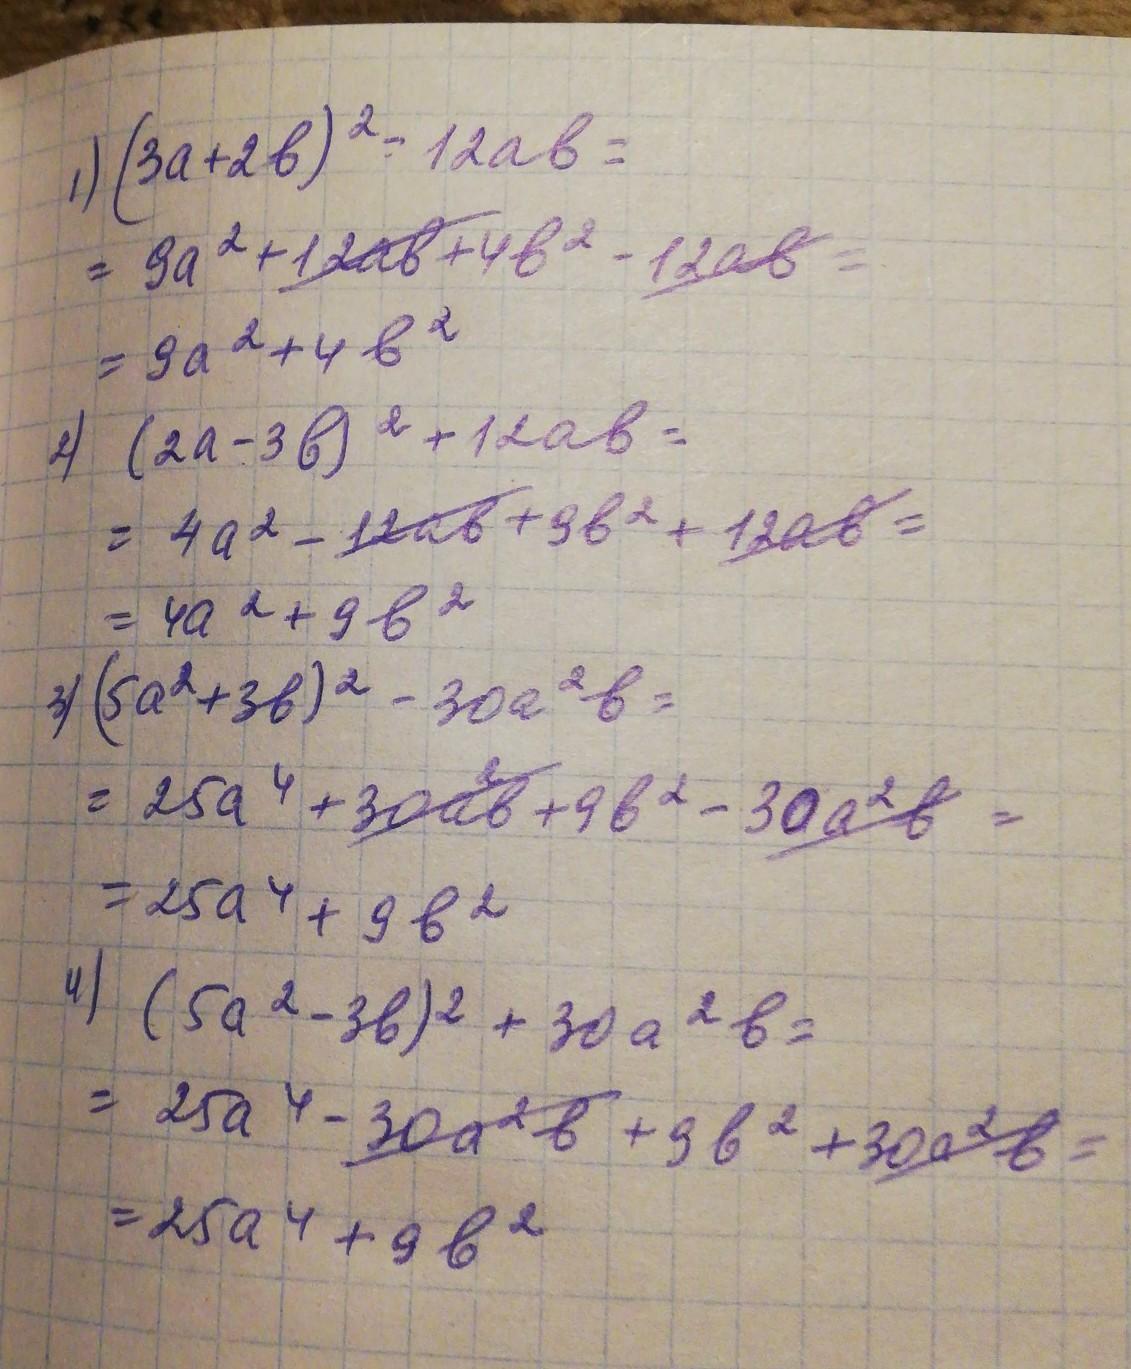 1) (3a+2b)² - 12ab =
= 9a² + 12ab + 4b² - 12ab =
= 9a² + 4b²
2) (2a - 3b)² + 12ab =
= 4a² - 12ab + 9b² + 12ab =
= 4a² + 9b²
3) (5a² + 3b)² - 30a²b =
= 25a⁴ + 30a²b + 9b² - 30a²b =
= 25a⁴ + 9b²
4) (5a² - 3b)² + 30a²b =
= 25a⁴ - 30a²b + 9b² + 30a²b =
= 25a⁴ + 9b²